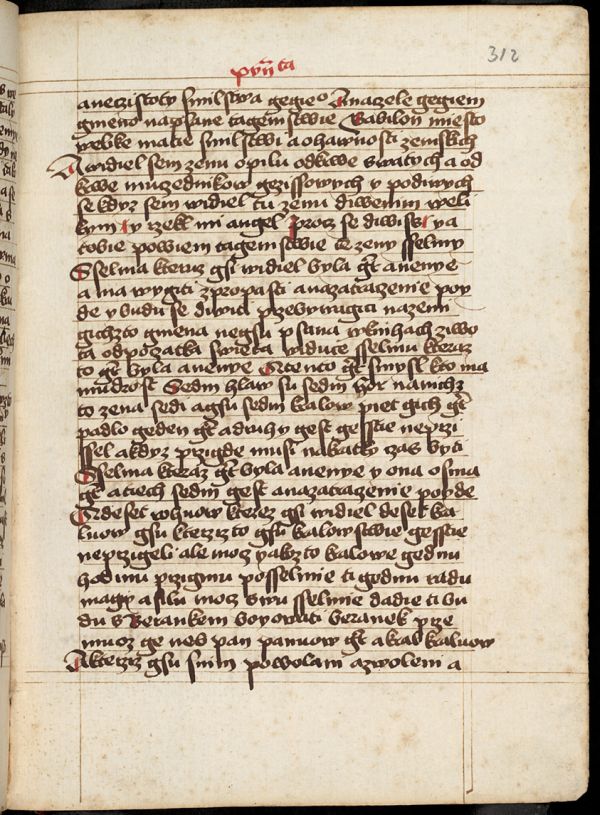 312
aneczistoty smilstwa gegieo A naczele gegiem
gmeno napsane tagemstwie Babilon miesto
welike matie smilstwi a ohawnosti zemskich
A widiel sem zenu opilu odkrwe swatych a od
krwe muczednikow gezissowych y podiwych
se kdyz sem widiel tu zenu diwenim weli
kym y rzekl mi angel procz se diwiss ya
tobie powiem tagemstwie te zeny sselmy
Sselma kteruz gsi widiel byla gt anenye
a ma wygiti zpropasti anazatracenie poy
de y budu se diwiti przebywagici nazemi
gichzto gmena negsu psana wknihach ziwo
ta odpoczatka swieta widuce sselmu kteraz
to gt byla anenye A tento gt smysl kto ma
mudrost Sedm hlaw su sedm hor nanichz
to zena sedi agsu sedm kralow piet gich gt
padlo geden gt adruhy gest gesstie neprzi
ssel akdyz przigde musi nakratky czas byti
Sselma kteraz gt byla anenye y ona osma
gt atiech sedm gest anazatracenie poyde
A deset rohuow kterez gsi widiel deset kra
luow gsu kterzizto gsu kralowstwie gesstie
neprzigeli ale moc yakzto kralowe gednu
hodinu przigmu posselmie ti gednu radu
magi a silu moc swu sselmie dadie ti bu
du sberankem boyowati beranek prze
muoz ge neb pan panuow gt a kral kraluow
A kterziz gsu snim powolani azwoleni a